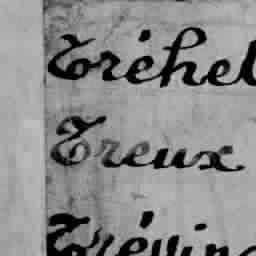 Tréhel
Treux
Trévin